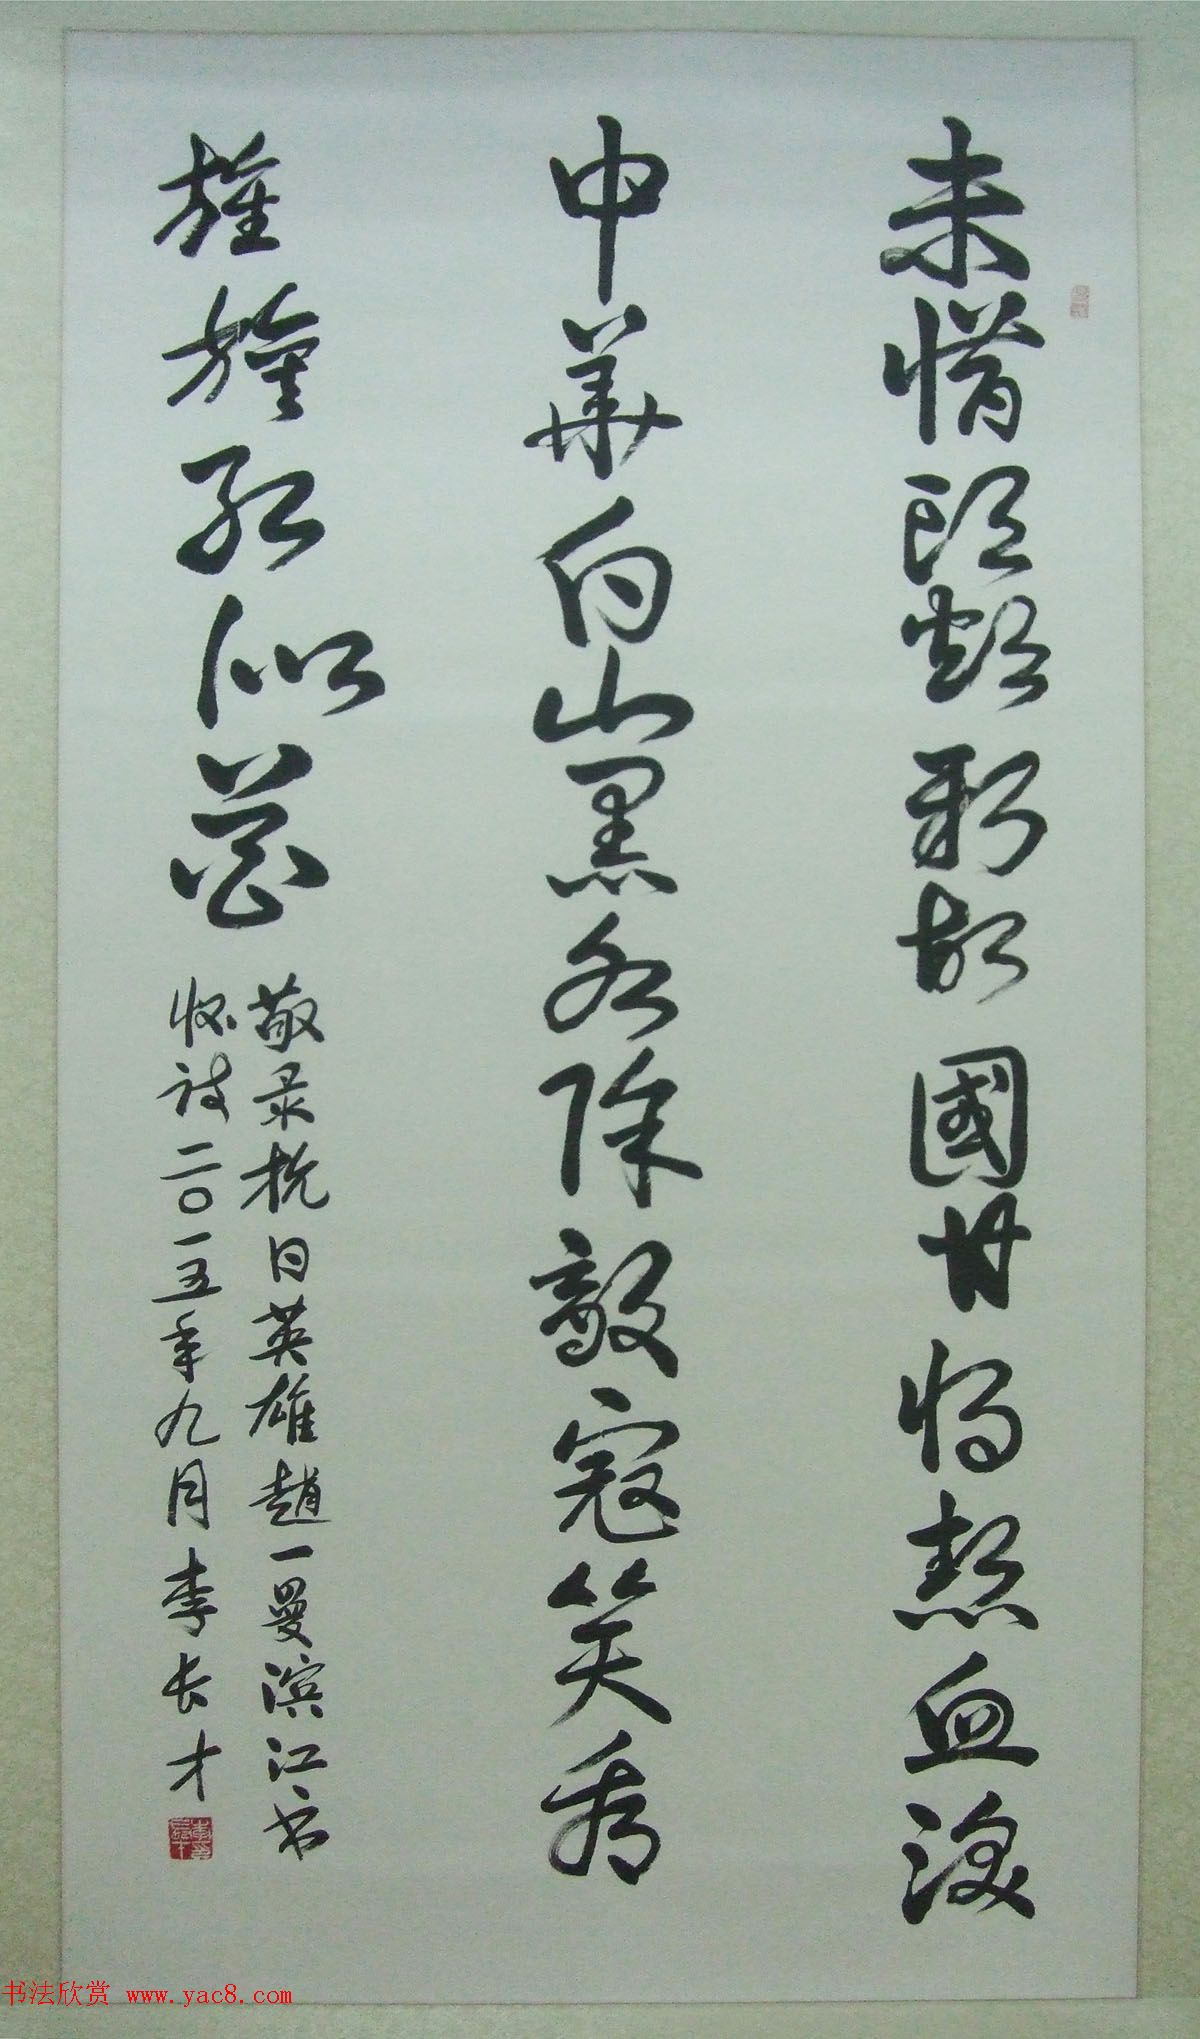 未惜頭顱新故國甘將熱血
中華白山黑水除敵寇笑看
旌旗紅似花
敬录抗日英雄趙一曼滨江书
怀诗二〇一五年九月李长才
书法欣赏 www.yac8.com